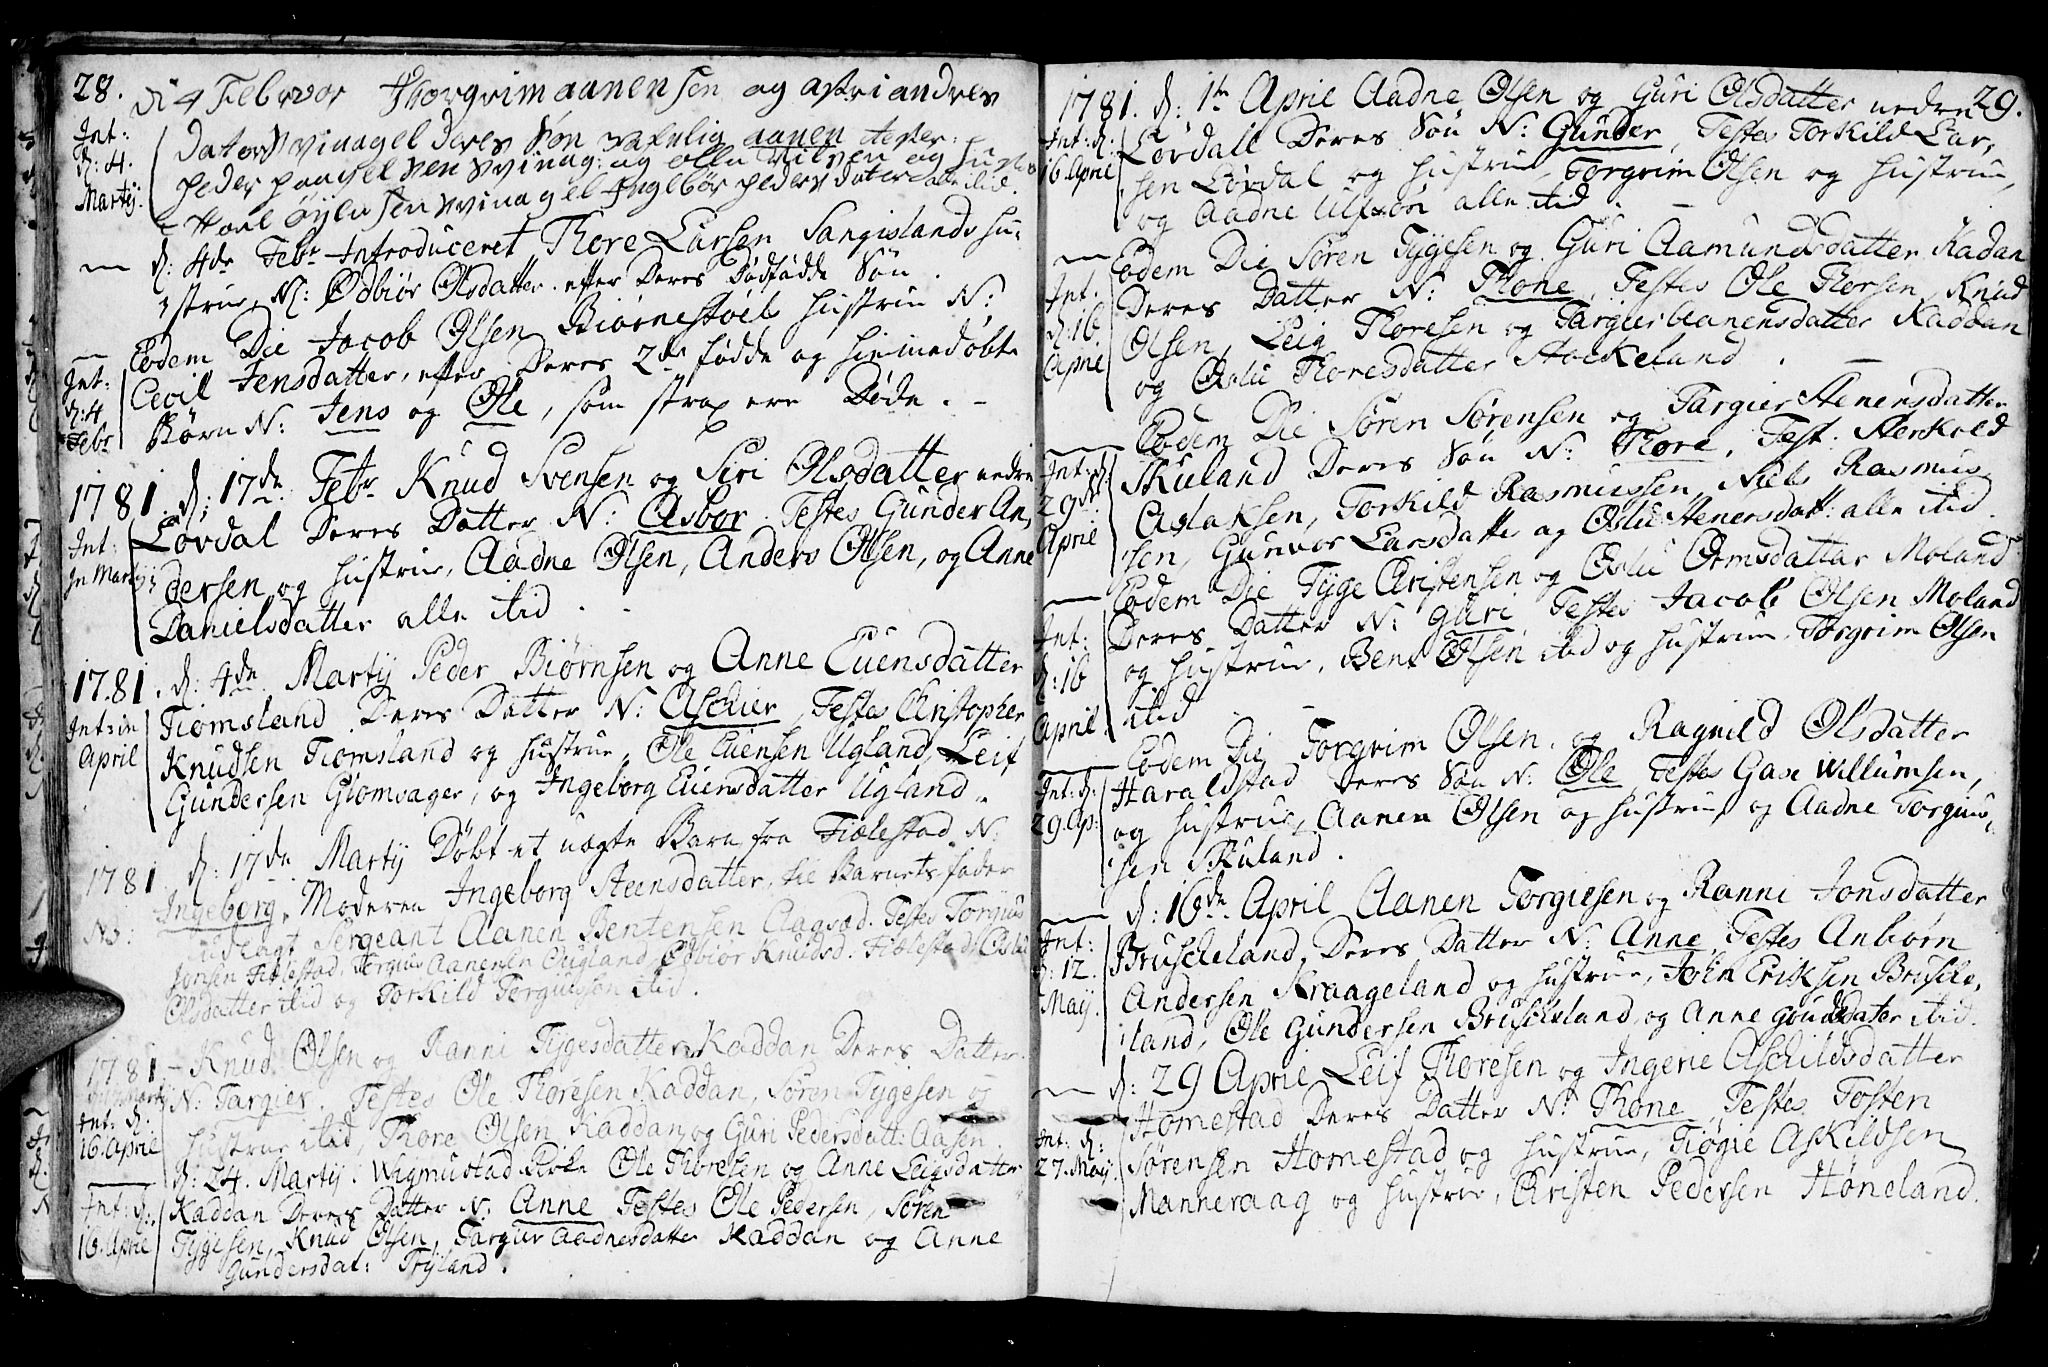 28.
di 4 Febrvor Thorgrim aanensen og astri andres
Int:
d: 4.
Martij.
dater Vvinagel deres søn nafnlig aanen tester:
peder paaselsen Vvinag: og olla nilsen og hustro
Vvinagel Inglebør peders dater alle itid.
d: 4de Febr Introduceret Thore Larsen Sangislands Hu-
strue N: Ødbiør Olsdatter efter Deres Dødfødde Søn.
Eodem Die Jacob Olsen Biørnestøels Hustrue N:
Int:
d: 4
Febr
Cecil Jensdatter, efter Deres 2de fødde og hiemmedøbte
Børn N: Jens og Ole, som strax ere Døde. -
1781. d: 17de Febr Knud Svensen og Siri Olsdatter nedre
Int:
In Martij:
Løvdal Deres Datter N: Asbor. Testes Gunder An,
dersen og Hustrue, Aadne Olsen, Anders Olsen, og Anne
Danielsdatter alle itid.
1781. d: 4de Martij Peder Biørnsen og Anne Euensdatter
Int: in
April
Tiomsland Deres Datter N: Aschier, Testes Christopher
Knudsen Tiomsland og Hustrue, Ole Euensen Ugland, Leif
Gundersen Giomsager, og Ingeborg Euensdatter Ugland.
1781 d: 17de Martij Døbt et uægte Barn fra Fiælestad N:
No:
Ingeborg, Moderen Ingeborg Steensdatter, til Barnets fader
udlagt Sergeant Aanen Bentensen Aagsæd. Testes Torgius
Jonsen Fiælestad, Torgius Aanensen Ougland, Ødbiør Knudsd. Fiælestad, Oslu
Olsdatter itid og Torkild Torgiusson itid.
1781 - Knud Olsen og Ranni Tygesdatter Kaddan Deres Datter
N: Targier. Testes Ole Thoresen Kaddan, Søren Tygesen og
Int: d.
16. April
Hustrue itid, Thore Olsen Kaddan og Guri Pedersdatt: Aasen.
d: 24. Martij. Wigmustad Kirke Ole Thoresen og Anne Leifsdatter
Int: d:
16. April
Kaddan Deres Datter N: Anne Testes Ole Pedersen, Søren
Tygesen, Knud Olsen, Targier Aadnesdatter Kaddan og Anne
Gundersdat: Tryland.
29.
1781. d: 1te April Aadne Olsen og Guri Olsdatter nedre
Int: d:
16 April
Løvdall Deres Søn N: Gunder, Testes Torkild Lar,
sen Løvdal og Hustrue, Torgrim Olsen og Hustrue,
og Aadne Ulfsøn alle itid.
Eodem Die Søren Tygesen og Guri Aamundsdatter Kadan
Int.
d: 16.
April
Deres Datter N: Thone, Testes Ole Thorsen, Knud
Olsen, Leif Thoresen og Targier Aanensdatter Kaddan
og Oslu Thoresdatter Stockeland.
Eodem Die Søren Sørensen og Targier Stenensdatter
Int: d:
29de
April
Skuland Deres Søn N: Thore, Test. Sterkold
Aslaksen, Torkild Rasmussen, Niels Rasmus,
sen, Gunvor Larsdatter og Oslu Stenersdatt: alle itid.
Eodem Die Tyge Christensen og Oslu Ormsdatter Moland
Int:
d: 16
April.
Deres Datter N: Guri Testes Jacob Olsen Moland
og Hustrue, Bent Olsen itid og Hustrue, Torgrim Olsen
itid
Eodem Die Torgrim Olsen og Ragnild Olsdatter
Int: d:
29. Ap:
Haraldstad Deres Søn N: Ole, Testes Gase Willumsen,
og Hustrue, Aanen Olsen og Hustrue og Aadne Torgius,
sen Skuland.
d: 16de April Aanen Torgiesen og Ranni Jonsdatter
Int:
d: 12.
Maij.
Bruskeland, Deres Datter N: Anne, Testes Anbiørn
Andersen Kraageland og Hustrue, John Eriksen Bruske,
land, Ole Gundersen Bruskeland og Anne Goudsdater itid.
d: 29 April Leif Thoresen og Ingerie Aschildsdatter
Homestad Deres Datter N: Thone, Testes Tosten
Int: d:
27. Maij.
Sørensen Homestad og Hustrue, Tiøgie Askildsen
Manneraag og Hustrue, Christen Pedersen Høneland.